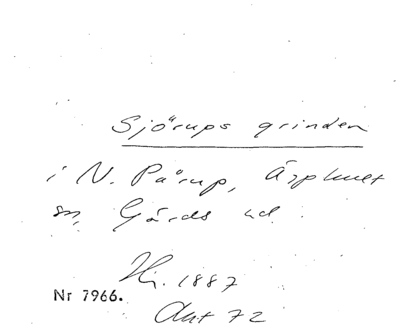 Sjörups grinden
i N. Pårup, Äsphult
sn, Gärds hd.
Hi. 1887
Nr 7966.
Ant 72